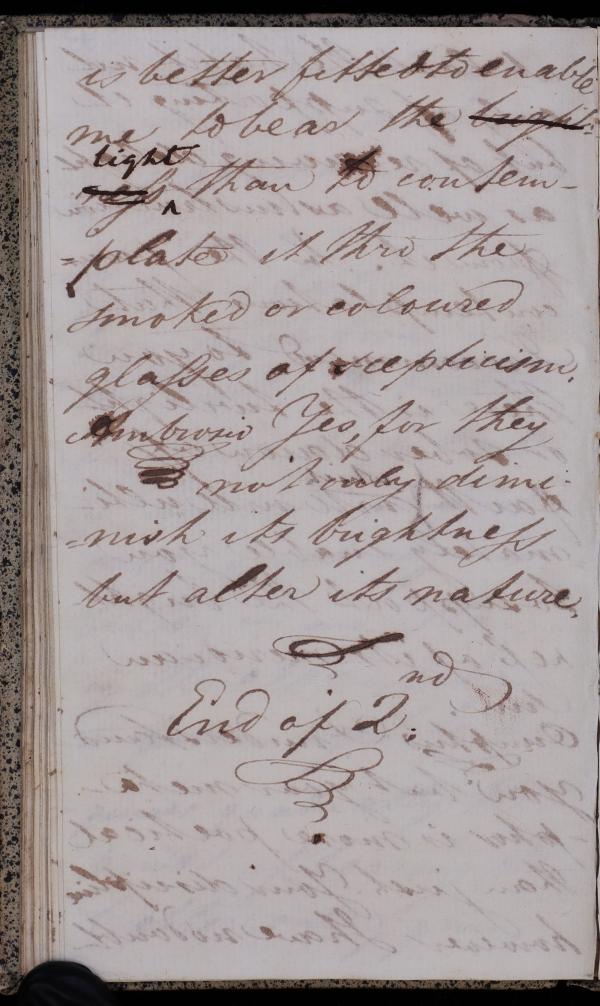 is better fitted to enable
me to bear the bright-
light
ness than to contem-
=plate it thro the
smoked or coloured
glasses of scepticism.
Ambrosio Yes, for they
not only dimi-
=nish its brightness
but alter its nature.
End of 2nd.